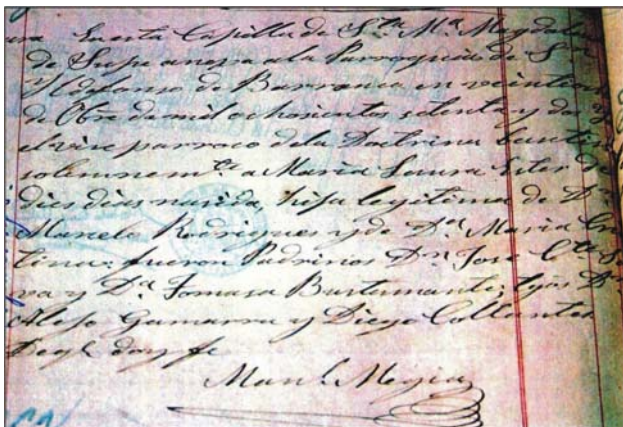 En esta Capilla de Sta. Ma. Magdale
de Supe anexa a la Parroquia de Sn
Ildefonso de Barranca en veintiun
de Obre de mil ochosientos setenta y dos Yo
el vice parroco de la Doctrina bautisé
solemnemte. a Maria Laura Ester de
dies dias nasida, hija legitima de Dn
Marcelo Rodrigues y de Da. Maria Cris
tina: fueron Padrinos Dn. José
va y Da. Tomasa Bustamante; tgos Dn
Alejo Gamarra y Diego Collantes
De q doy fe
Manl. Megia